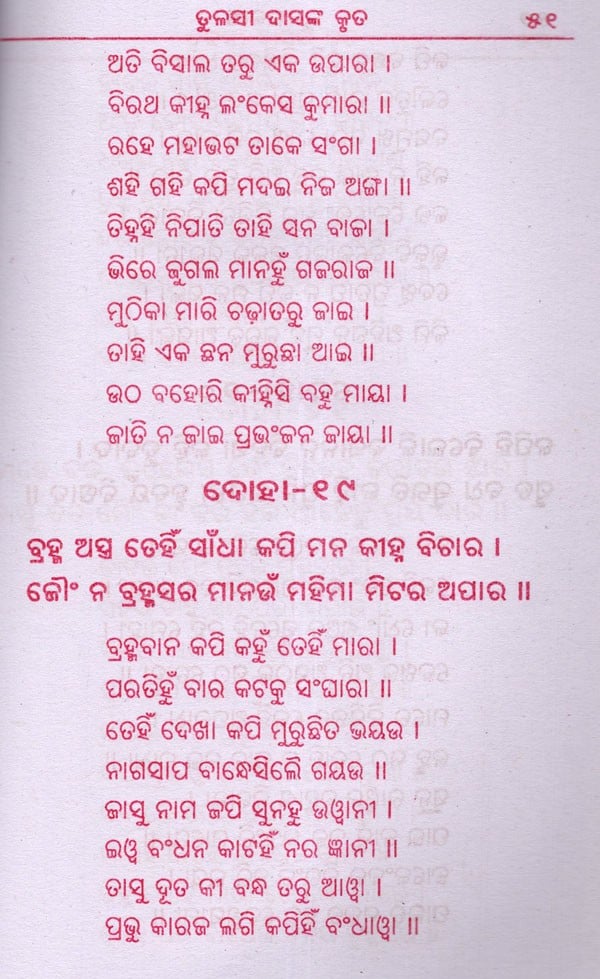 ତୁଳସୀ ଦାସଙ୍କ କୃତ ୫୧
ଅତି ବିସାଲ ତରୁ ଏକ ଉପାରା ।
ବିରଥ କୀହ୍ନ ଲଂକେସ କୁମାରା ॥
ରହେ ମହାଭଟ ତାକେ ସଂଗା ।
ଶହି ଗହି କପି ମଦଇ ନିଜ ଅଙ୍ଗା ॥
ତିହ୍ନହି ନିପାତି ତାହି ସନ ବାଜା ।
ଭିରେ ଜୁଗଲ ମାନହୁଁ ଗଜରାଜ ॥
ମୁଠିକା ମାରି ଚଢ଼ାତରୁ ଜାଇ ।
ତାହି ଏକ ଛନ ମୁରୁଛା ଆଇ ॥
ଉଠ ବହୋରି କୀହ୍ନିସି ବହୁ ମାୟା ।
ଜାତି ନ ଜାଇ ପ୍ରଭଂଜନ ଜାୟା ॥
ଦୋହା-୧୯
ବ୍ରହ୍ମ ଅସ୍ତ୍ର ତେହିଁ ସାଁଧା କପି ମନ କୀହ୍ନ ବିଚାର ।
ଜୌଂ ନ ବ୍ରହ୍ମସର ମାନଉଁ ମହିମା ମିଟର ଅପାର ॥
ବ୍ରହ୍ମବାନ କପି କହୁଁ ତେହିଁ ମାରା ।
ପରତିହୁଁ ବାର କଟକୁ ସଂଘାରା ॥
ତେହିଁ ଦେଖା କପି ମୁରୁଛିତ ଭୟଉ ।
ନାଗସାପ ବାନ୍ଧେସିଲୈ ଗୟଉ ॥
ଜାସୁ ନାମ ଜପି ସୁନହୁ ଉୱାନୀ ।
ଇୱ ବଂଧନ କାଟହିଁ ନର ଜ୍ଞାନୀ ॥
ତାସୁ ଦୂତ କୀ ବନ୍ଧ ତରୁ ଆୱା ।
ପ୍ରଭୁ କାରଜ ଲଗି କପିହିଁ ବଂଧାୱା ॥